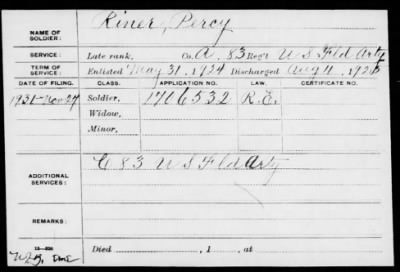 NAME OF SOLDIER: Riner, Percy
SERVICE: Late rank, Co. A, 83 Reg't U S Fld Arty
TERM OF SERVICE: Enlisted May 31, 1924 Discharged Aug 11, 1926
DATE OF FILING. CLASS. APPLICATION NO. CERTIFICATE NO.
1931-Nov-27 Soldier, 1706532 R.E.
Widow,
Minor,
ADDITIONAL SERVICES: C 83 U S Fld Arty
REMARKS:
Died , 1 , at